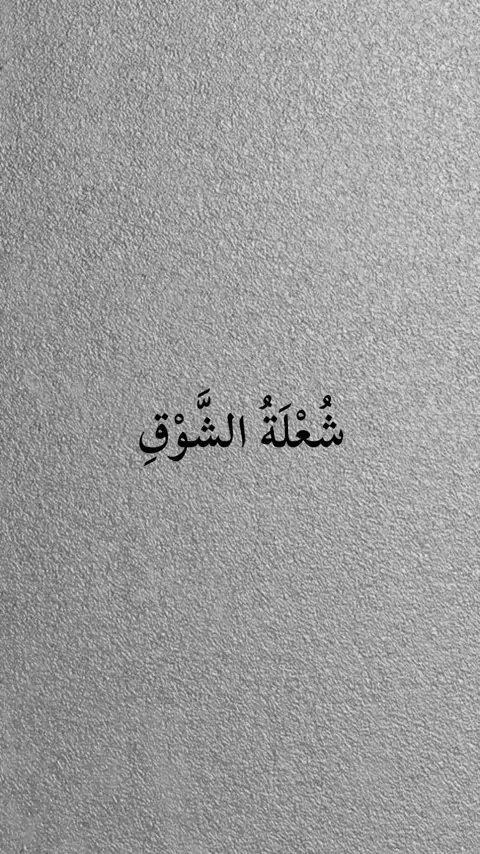 شُعْلَةُ الشَّوْقِ